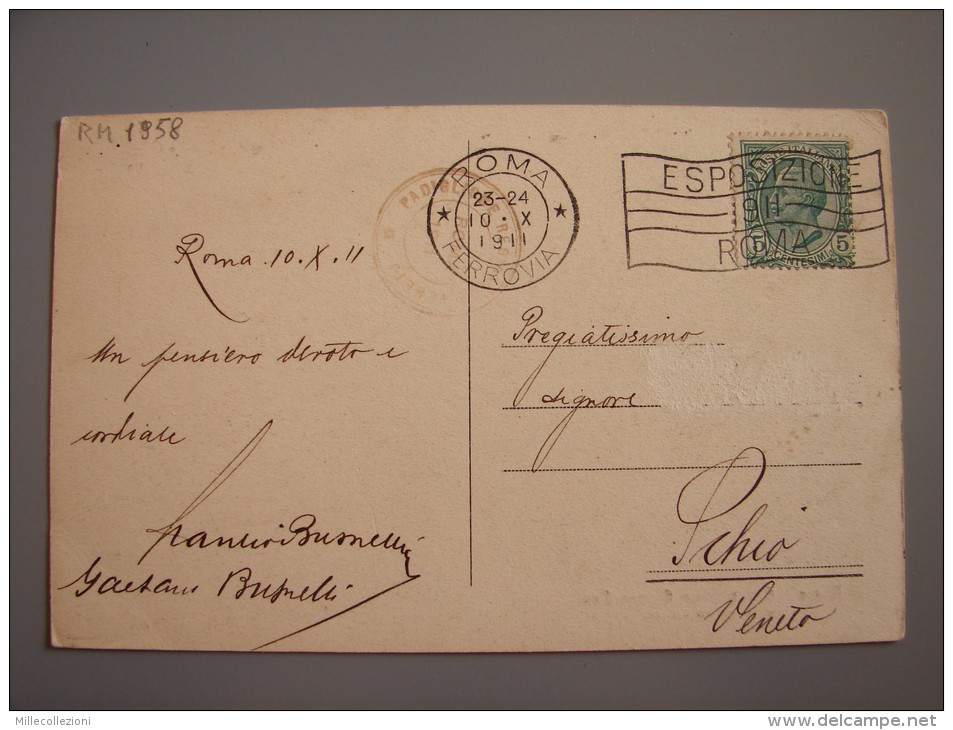 RM 1958
ROMA
23-24
10 · X
1911
FERROVIA
ESPOSIZIONE
1911
ROMA
POSTE ITALIANE
5 5
CENTESIMI
Roma 10.X.11
Un pensiero devoto e
cordiale
Busnelli
Gaetano Busnelli
Pregiatissimo
Signore
Schio
Veneto
Millecollezioni
www.delcampe.net